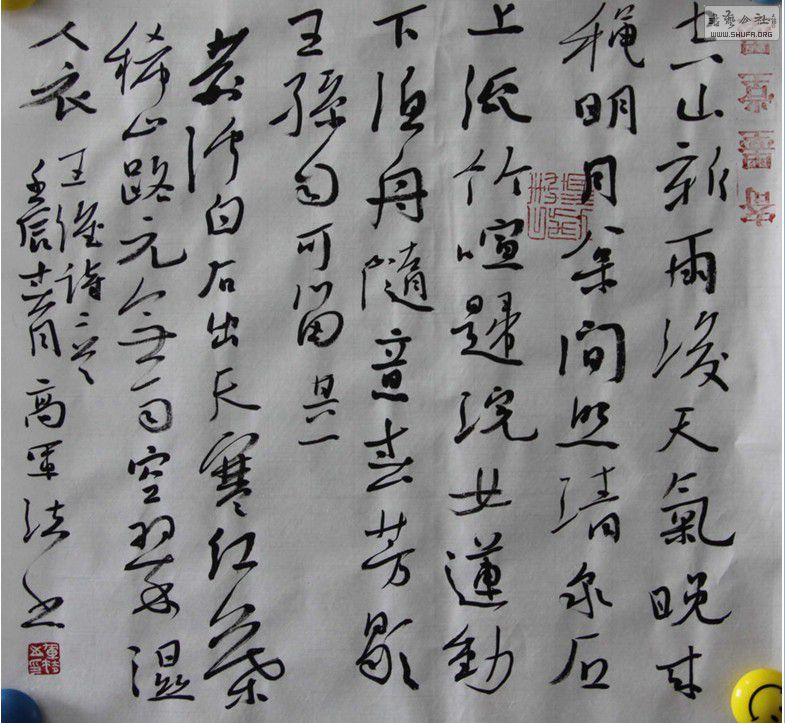 空山新雨後天氣晚來
穐明月松間照清泉石
上流竹喧歸浣女蓮動
下漁舟隨意春芳歇
王孫自可留 其一
荆溪白石出天寒红葉
稀山路元無雨空翠濕
人衣 王維詩二首
壬辰 月 高軍法书
書藝公社
WWW.SHUFA.ORG